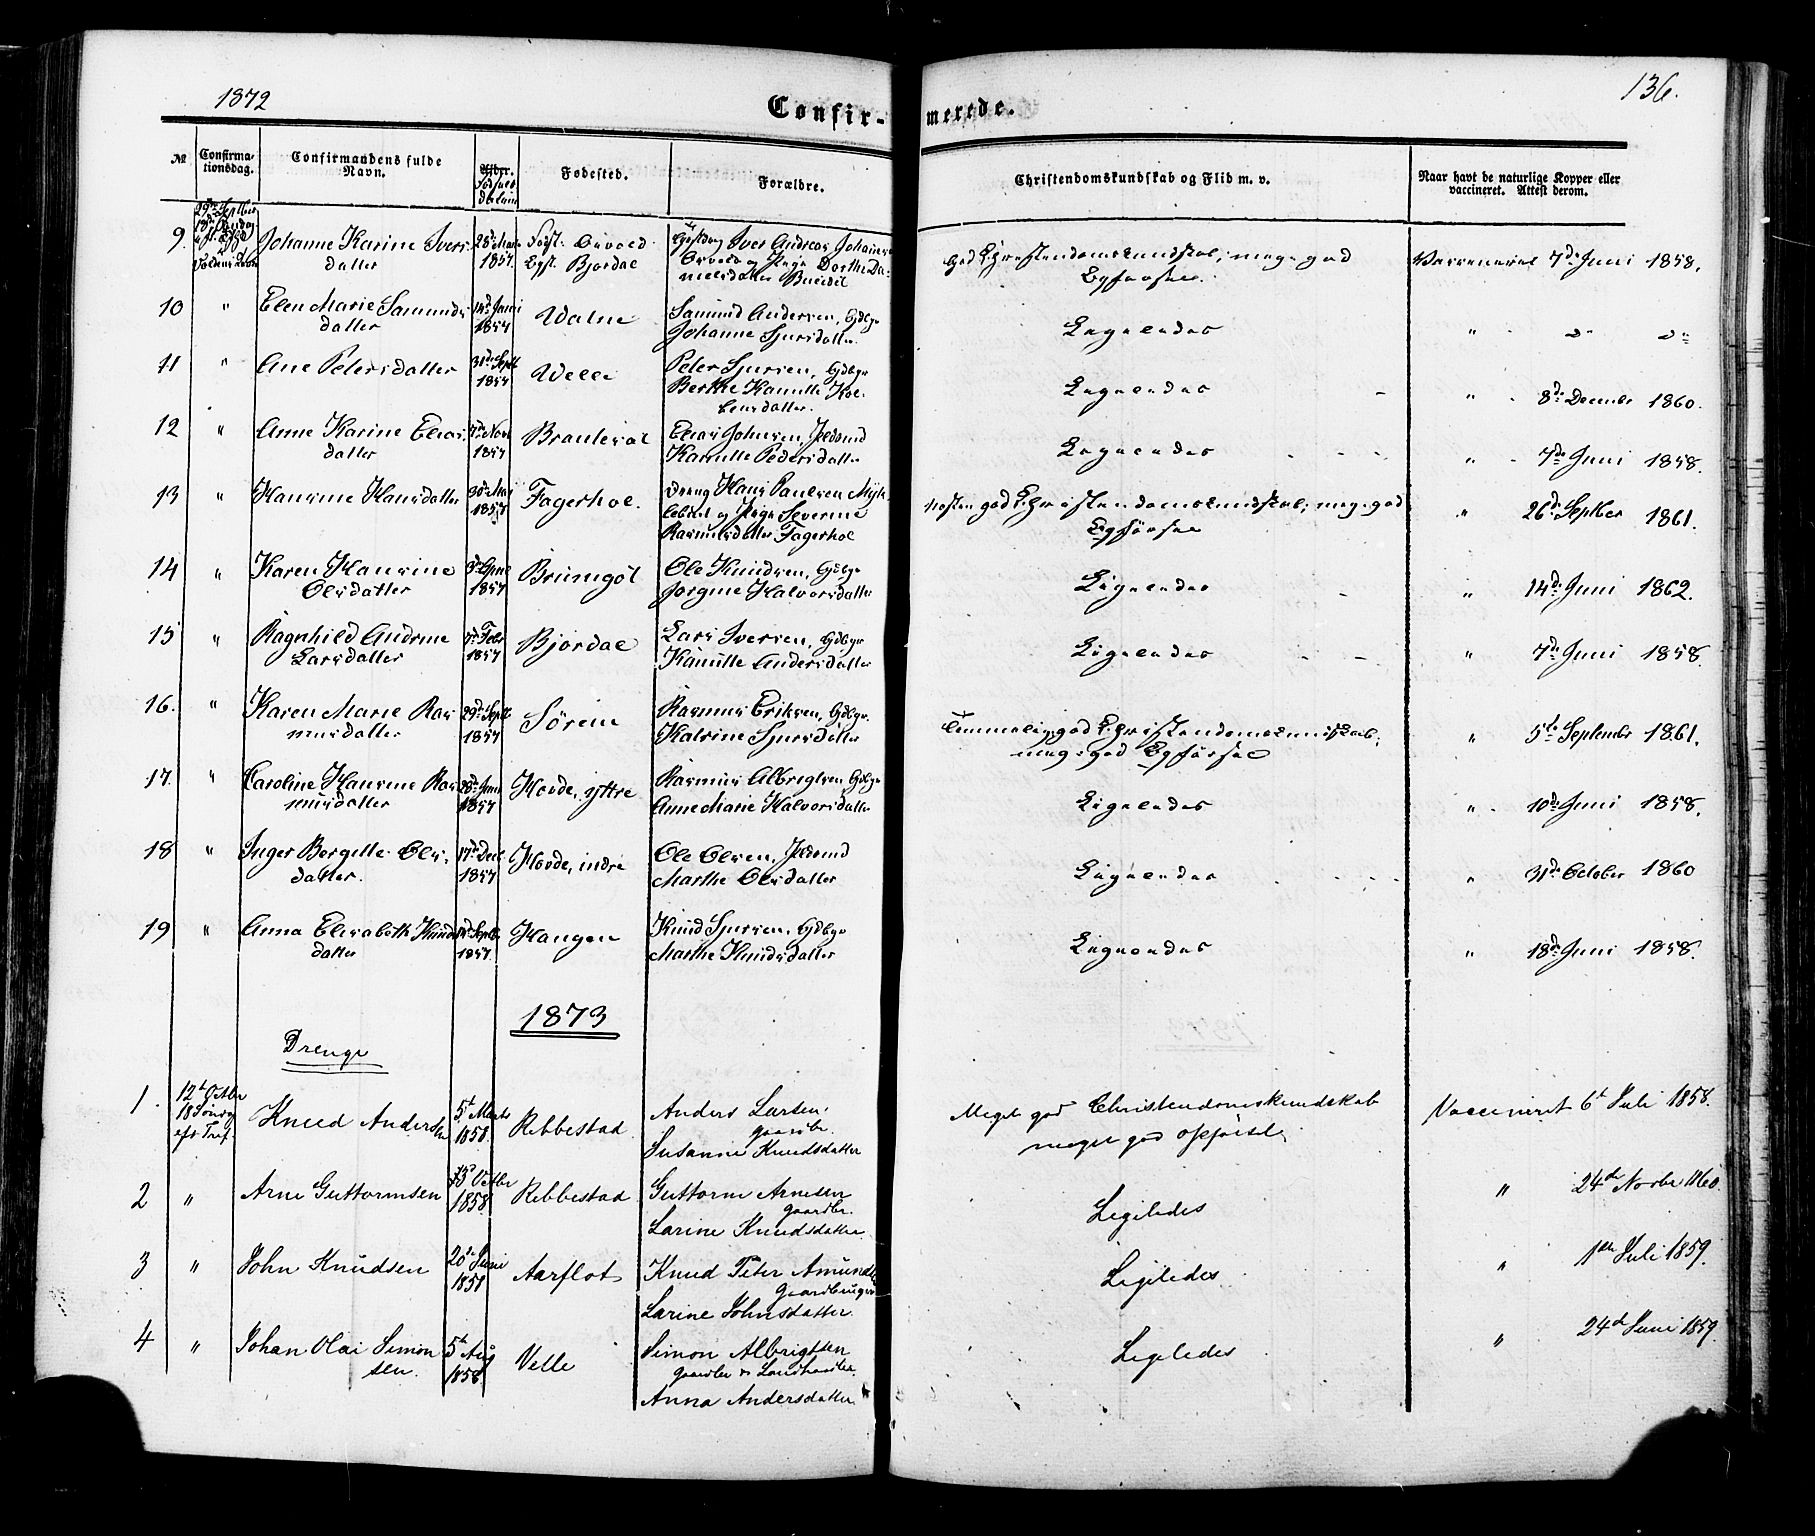 1872
136.
Confir-
merede.
№
Confirma-
tionsdag.
Confirmandens fulde
Navn.
Alder.
Fødested.
Forældre.
Christendomskundskab og Flid m. v.
Naar havt de naturlige Kopper eller
vaccineret. Attest derom.
29de Septber
9.
Johanne Karine Ivers
datter
1857.
Bjørdal
Iver Andreas
god Christendomskundskab, meget god
Opførsel.
Vaccineret 7de Juni 1858.
10
"
Elen Marie Samunds
datter
14de Juni
1857
Walne
Samund Andersen, Gdbgr
Johanne Sjursdatter
Ligeledes
"
11
"
Ane Petersdatter
1857
Welle
Peter Sjursen, Gdbgr
Berthe Kamille Kol-
bensdatter.
Ligeledes
" 8de Decembr 1860.
12
"
Anne Karine Elias
datter
7de Novr
1857
Elias Johnsen,
Kamille Pedersdatter
Ligeledes
" 7de Juni 1858.
13
"
Hansine Hansdatter
30de Mai
1857
Fagerhol.
Dreng Hans Paulsen Myk-
lebust og Pige Severine
Rasmusdatter Fagerhol
Næsten god Christendomskundskab, meget god
Opførsel
" 26de Septber 1861.
14
"
Karen Hansine
Olsdatter
1857
Ole Knudsen, Gdbgr
Jørgine Halvorsdatter
Ligeledes
" 14de Juni 1862.
15
"
Ragnhild Andrine
Larsdatter
7de Febr
1857
Bjørdal
Lars Iversen, Gdbgr
Kamille Andersdatter
Ligeledes
" 7de Juni 1858.
16.
"
Karen Marie Ras
musdatter
29de Septb
1857
Sørein
Rasmus Eriksen, Gdbgr.
Katrine Sjursdatter
Temmelig god Christendomskundskab,
meg. god Opførsel
" 5te September 1861.
17.
"
Caroline Hansine Ras
musdatter
1857
Hovde, ytre
Rasmus Albrigtsen Gdbgr
Anne Marie Halvorsdatter
Ligeledes
" 10de Juni 1858.
18
"
Inger Bergitte Ols-
datter.
17de Decb
1857
Hovde, indre
Ole Olsen,
Marthe Olsdatter
Ligeledes
" 31de October 1860
19
"
Anna Elisabeth Knuds
datter
1857.
Haugen
Knud Sjursen, Gdbgr
Marthe Knudsdatter
Ligeledes
" 18de Juni 1858.
1873
Drenge
1.
12te Octbr
18 Søndg
eft Tref.
Knud Andersen
5te Marts
1858.
Rebbestad.
Anders Larsen,
gaardbr.
Susanne Knudsdatter
Meget god Christendomskundskab
meget god opførsel.
Vaccineret 6te Juli 1858.
2
"
Arne Guttormsen
Octbr
1858
Rebbestad
Guttorm Arnesen
gaardbr.
Larine Knudsdatter
Ligeledes
" 24de Novbr 1860.
3
"
John Knudsen
20de Juni
1858
Aarflot
Knud Peter Amunds
Gaardbruger
Larine Johnsdatter
Ligeledes
" 1ste Juli 1859.
4
"
Johan Olai Simon
sen.
5te Aug
1858
Velle
Simon Albrigtsen
gaardbr & Landhandler
Anna Andersdatter
Ligeledes
" 24de Juni 1859.